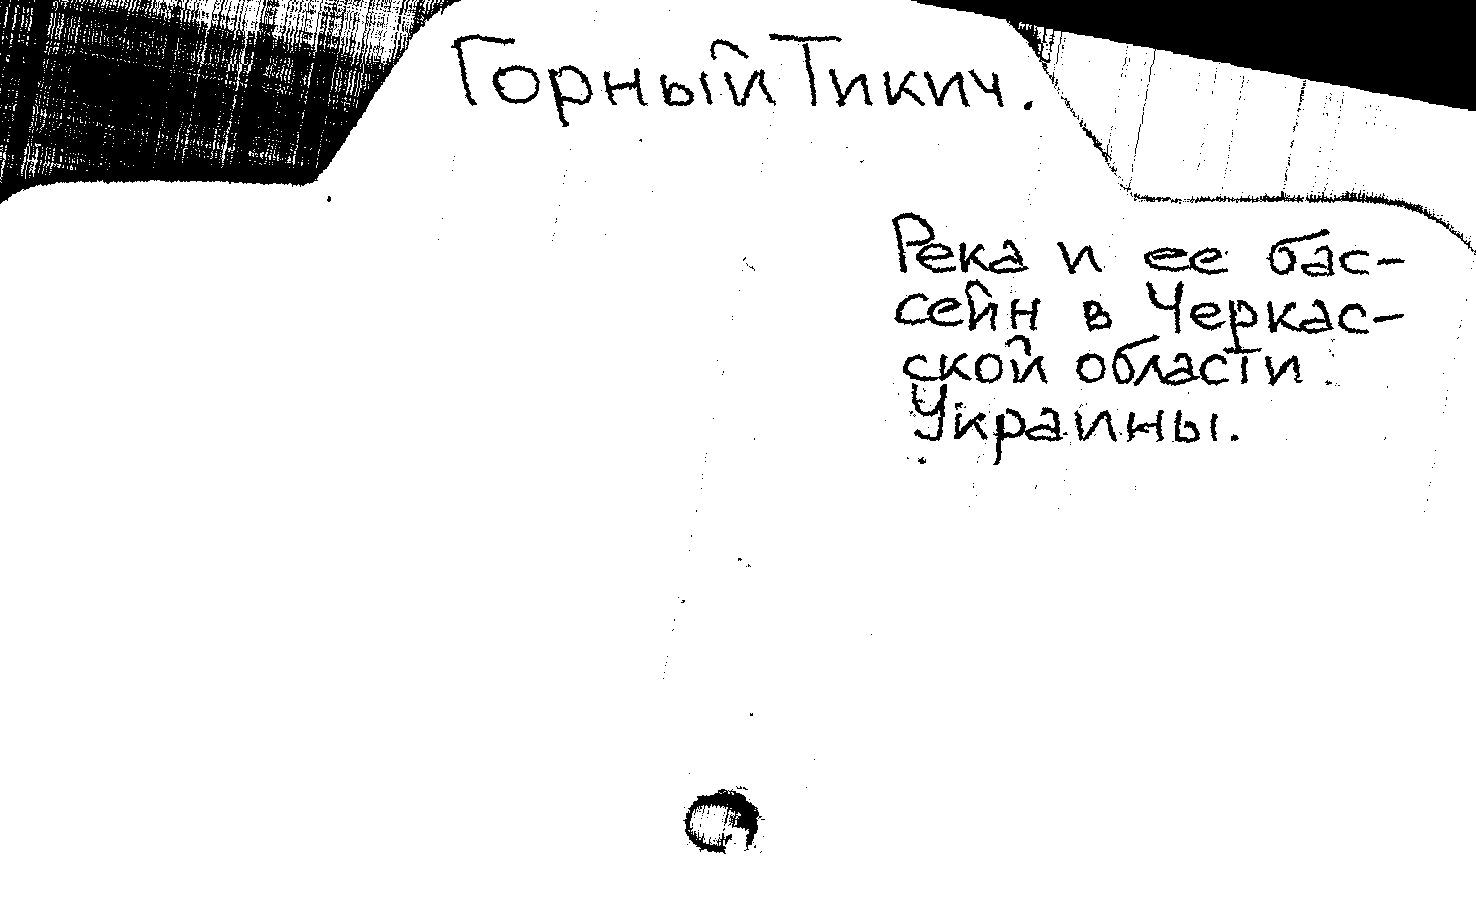 Горный Тикич.
Река и ее бас-
сейн в Черкас-
ской области
Украины.